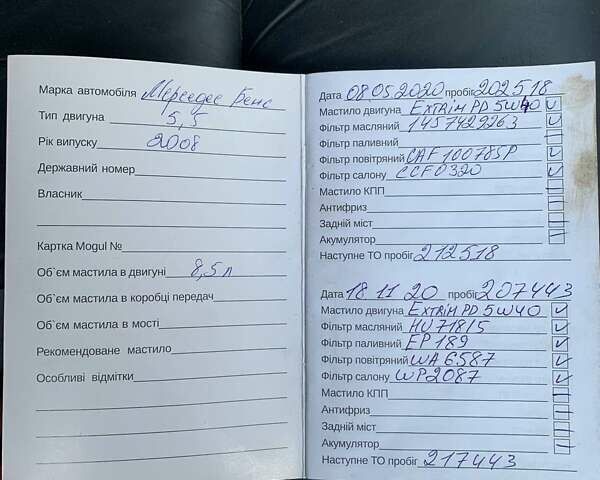 Марка автомобіля Мерседес Бенс
Тип двигуна 5,5
Рік випуску 2008
Державний номер
Власник
Картка Mogul №
Об'єм мастила в двигуні 8,5 л
Об'єм мастила в коробці передач
Об'єм мастила в мості
Рекомендоване мастило
Особливі відмітки
Дата 08,05,2020 пробіг 202518
Мастило двигуна EXTRIM PD 5W40
Фільтр масляний 1457429263
Фільтр паливний
Фільтр повітряний CAF100785P
Фільтр салону CCF0320
Мастило КПП
Антифриз
Задній міст
Акумулятор
Наступне ТО пробіг 212518
Дата 18 11 20 пробіг 207443
Мастило двигуна EXTRIM PD 5W40
Фільтр масляний HU718/5
Фільтр паливний EP 189
Фільтр повітряний WA 6587
Фільтр салону WP2087
Мастило КПП
Антифриз
Задній міст
Акумулятор
Наступне ТО пробіг 217443